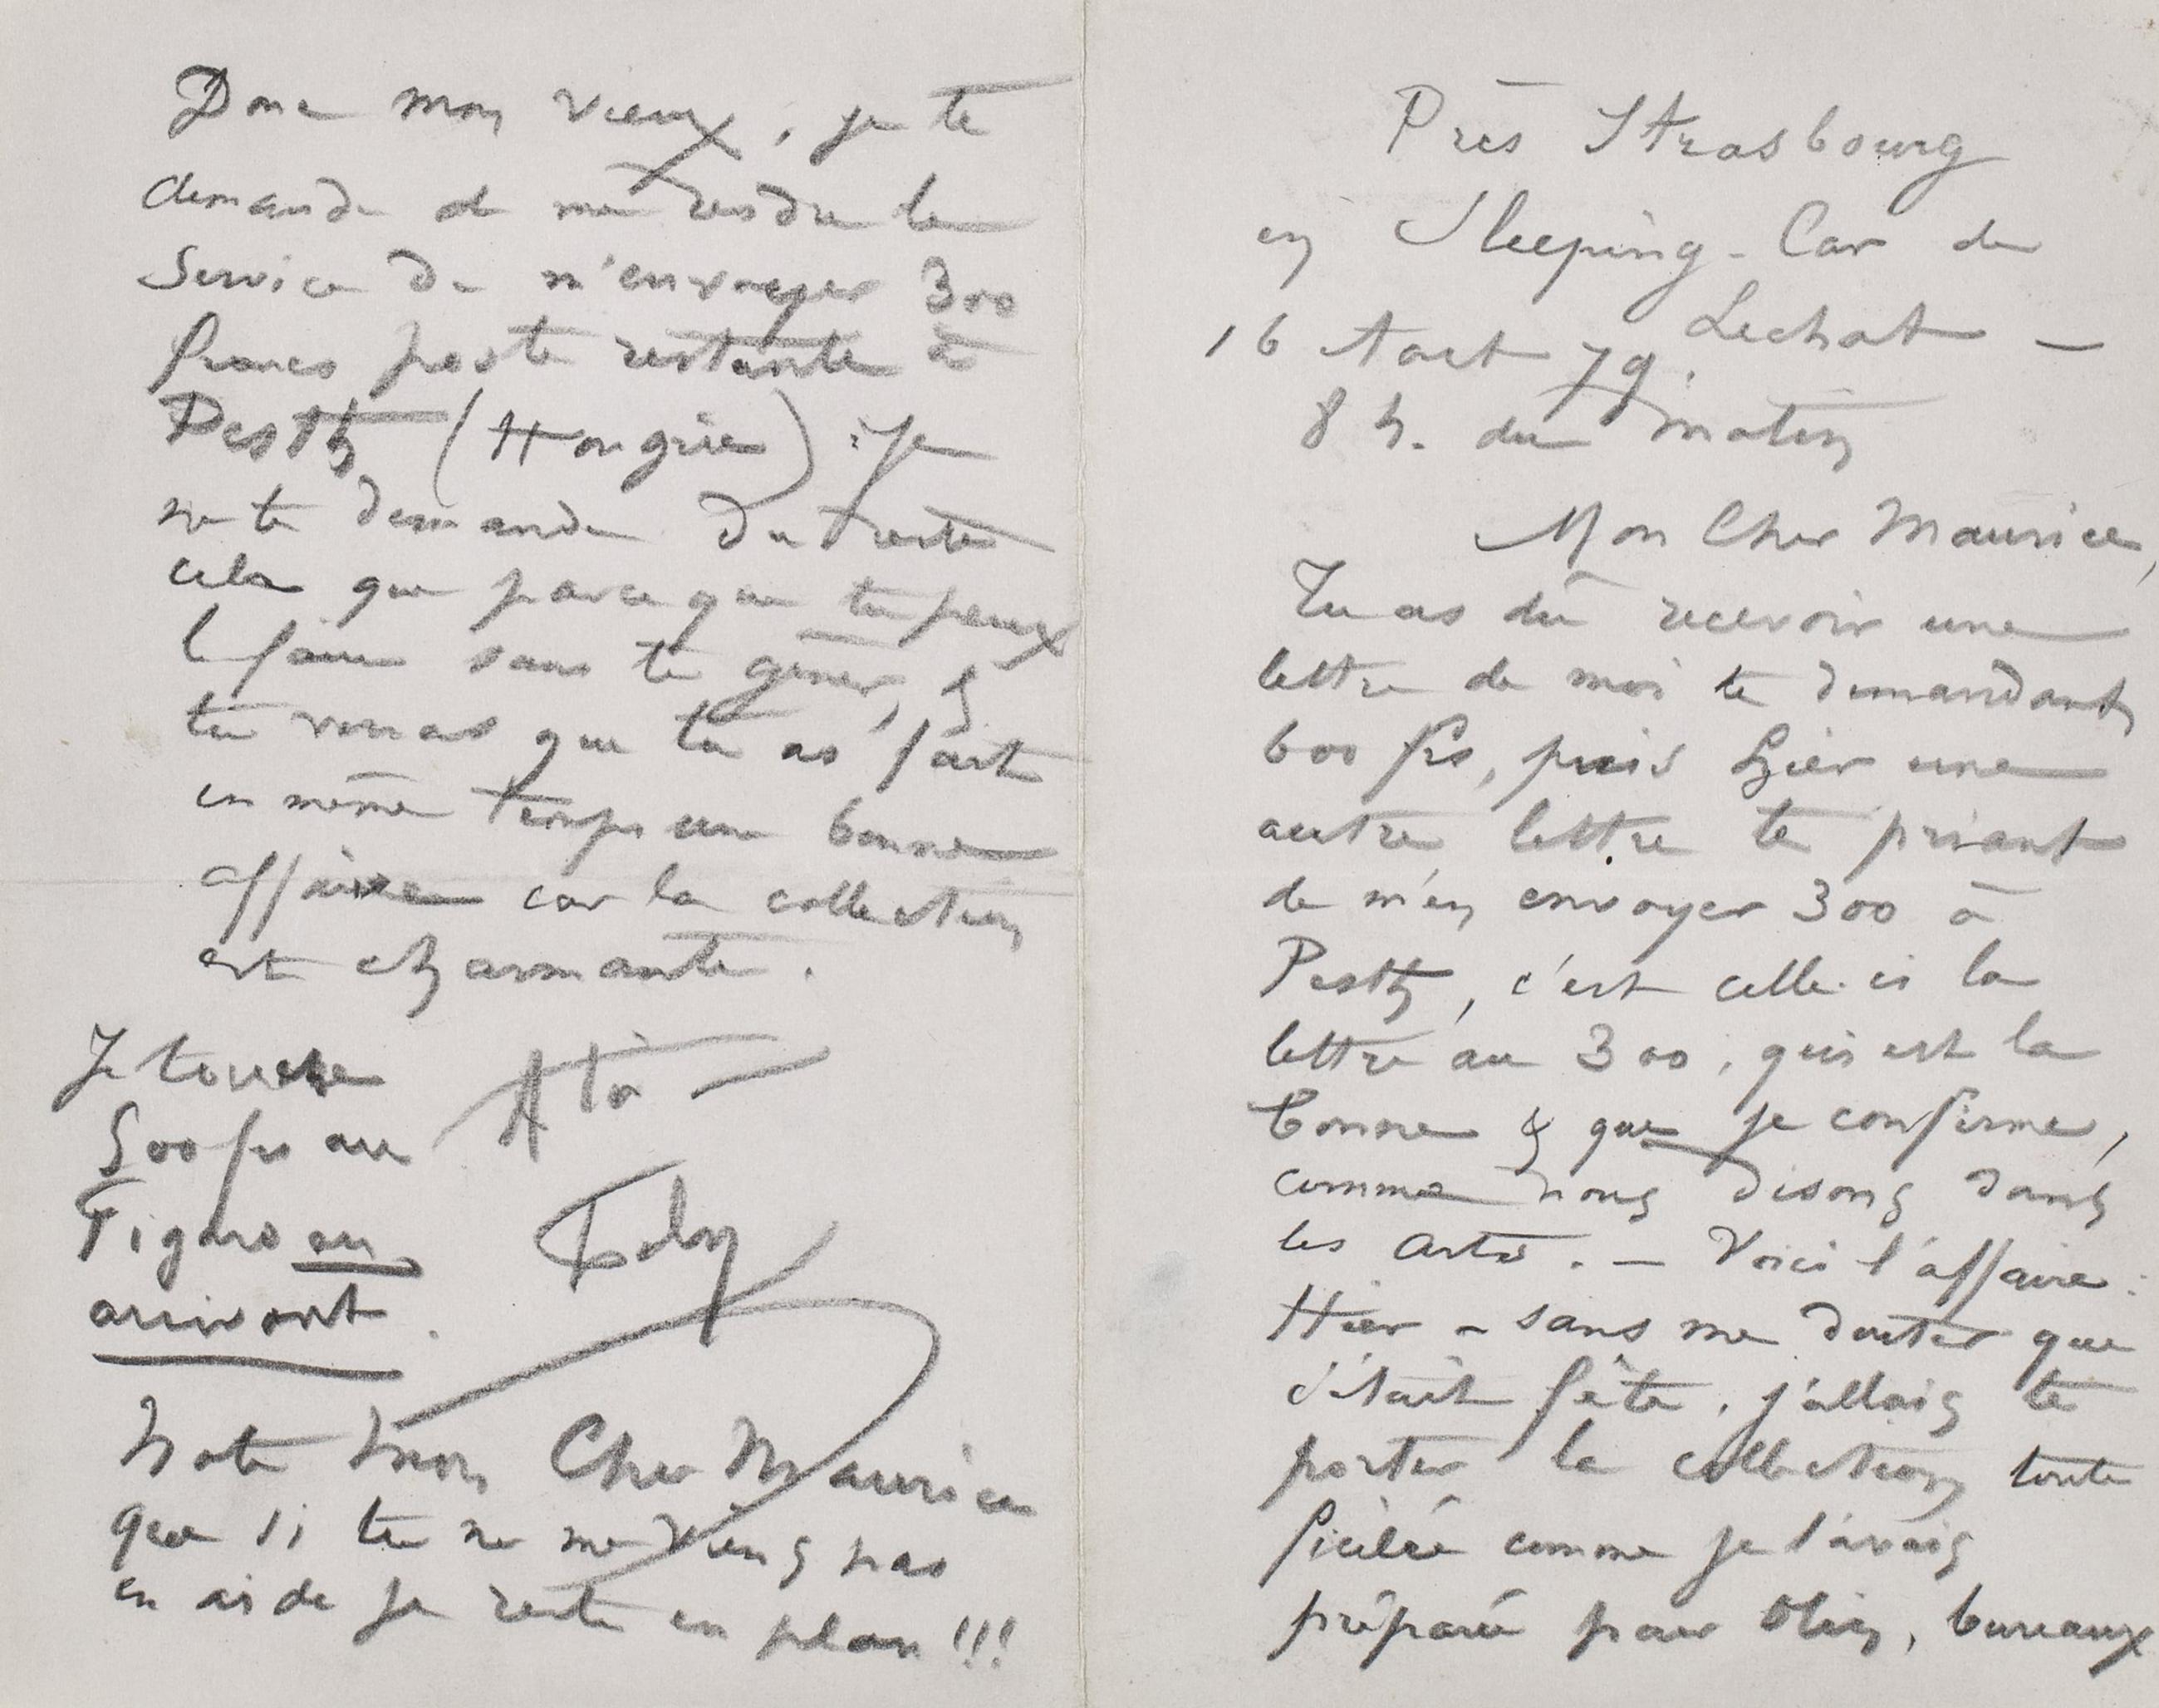 Près Strasbourg
en Sleeping-Car de
Lechat —
16 Aout 79.
8 h. du matin
Mon Cher Maurice,
Tu as dû recevoir une
lettre de moi te demandant
600 frs, puis hier une
autre lettre te priant
de m'en envoyer 300 à
Pesth, c'est celle-ci la
lettre au 300, qui est la
bonne & que je confirme,
comme nous disons dans
les arts. — Voici l'affaire :
Hier - sans me douter que
c'était fête, j'allais te
porter la collection toute
ficelée comme je l'avais
préparée pour Olin, bureaux
Donc mon vieux, je te
demande de me rendre le
Service de m'envoyer 300
francs poste restante à
Pesth (Hongrie) : je
ne te demande du reste
cela que parce que tu peux
le faire sans te gêner, &
tu verras que tu as fait
en même temps une bonne
affaire car la collection
est charmante.
A toi —
Je touche
500 frs au
Figaro en
arrivant.
Note mon Cher Maurice
que si tu ne me viens pas
en aide je reste en plan !!!